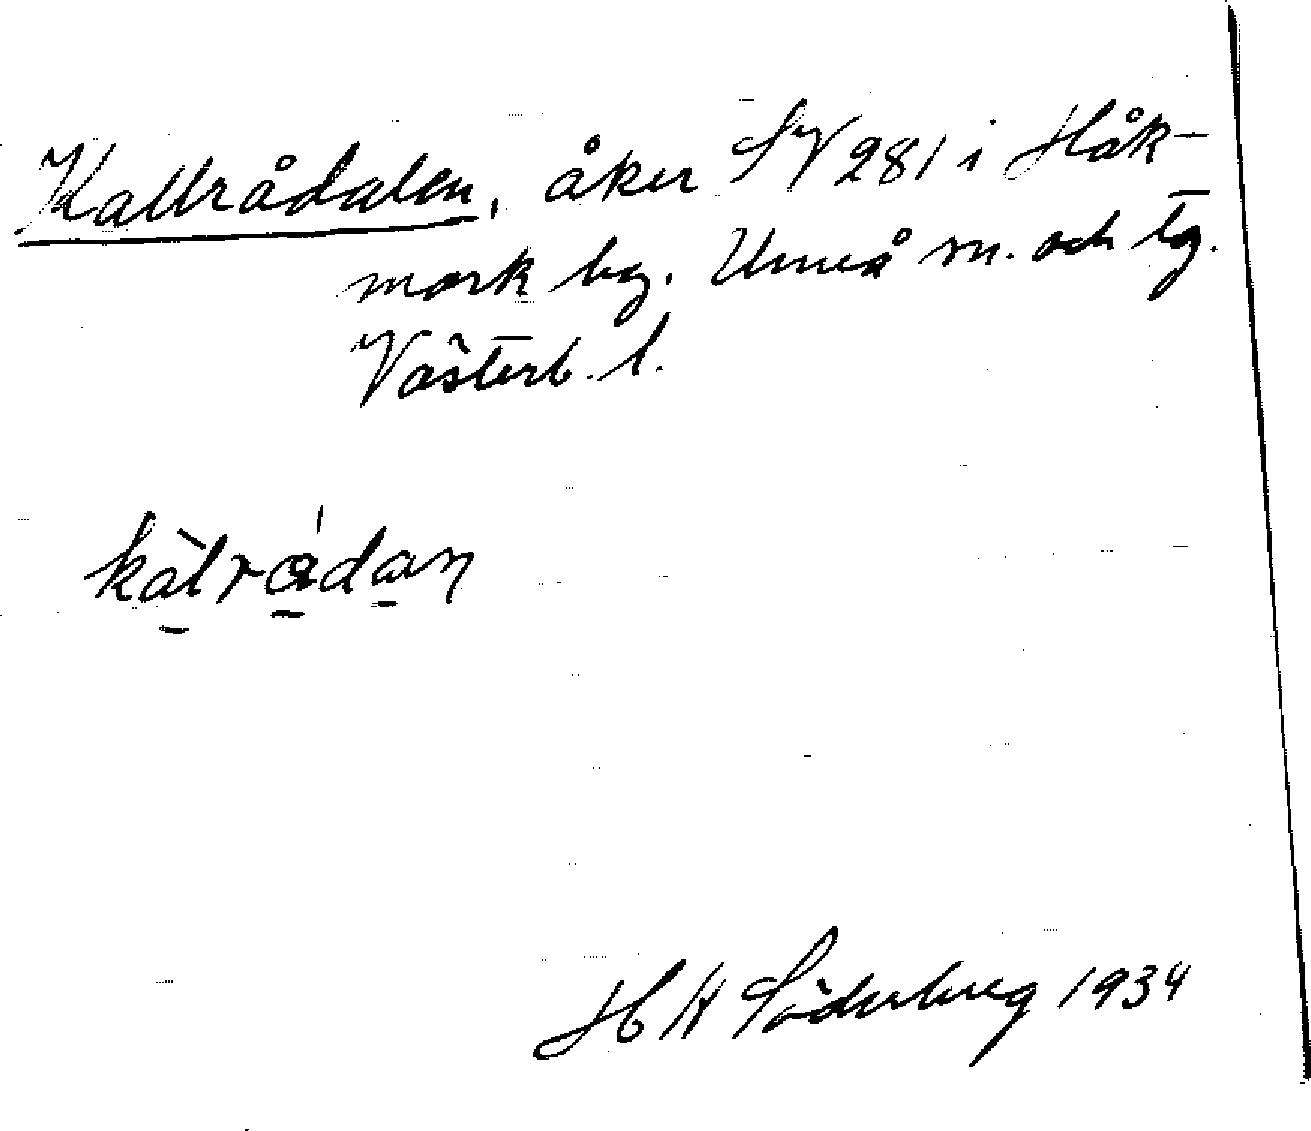 Kallrådalen, åker SV 281 i Håk-
mark by. Umeå sn. och tg.
Västerb. l.
kàlrådan
H W Söderberg 1934